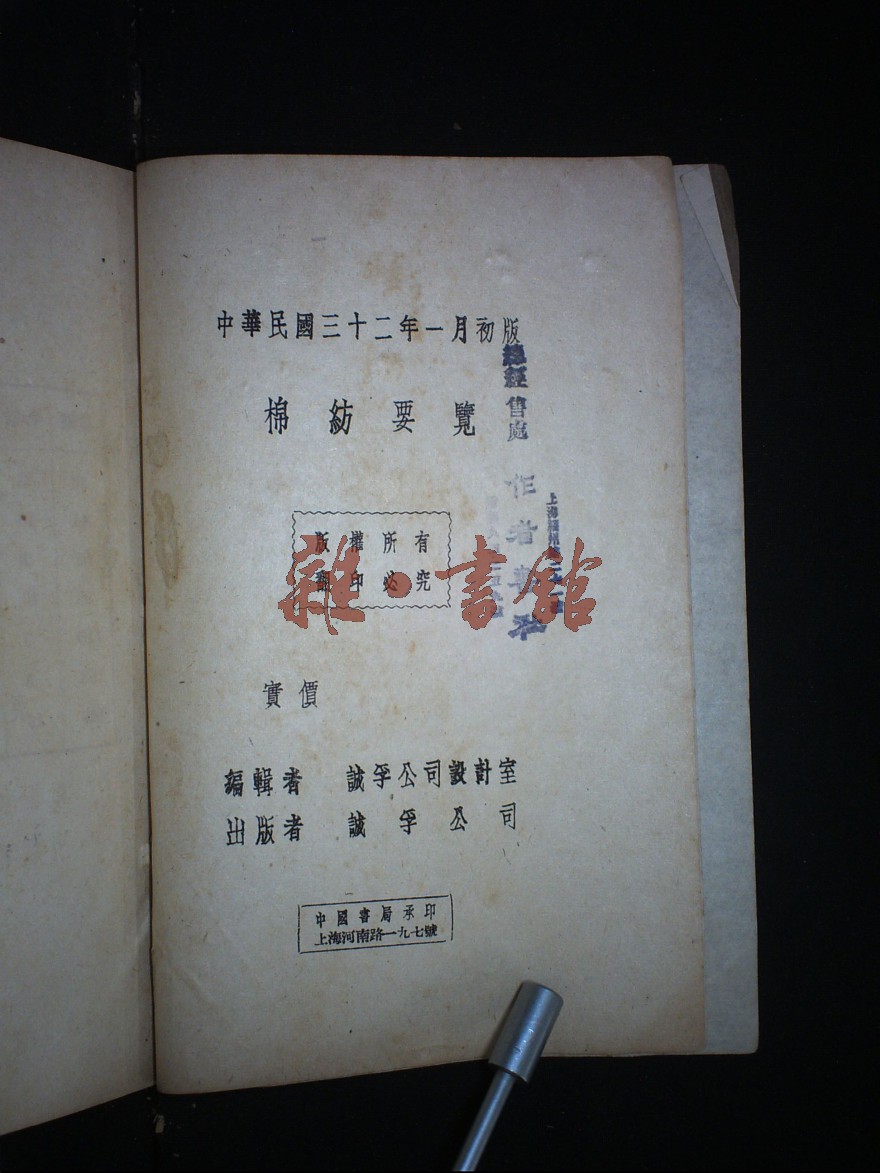 中華民國三十二年一月初版
棉紡要覽
版權所有
翻印必究
實價
編輯者 誠孚公司設計室
出版者 誠孚公司
中國書局承印
上海河南路一九七號
總經售處
作者書社
雜·書館